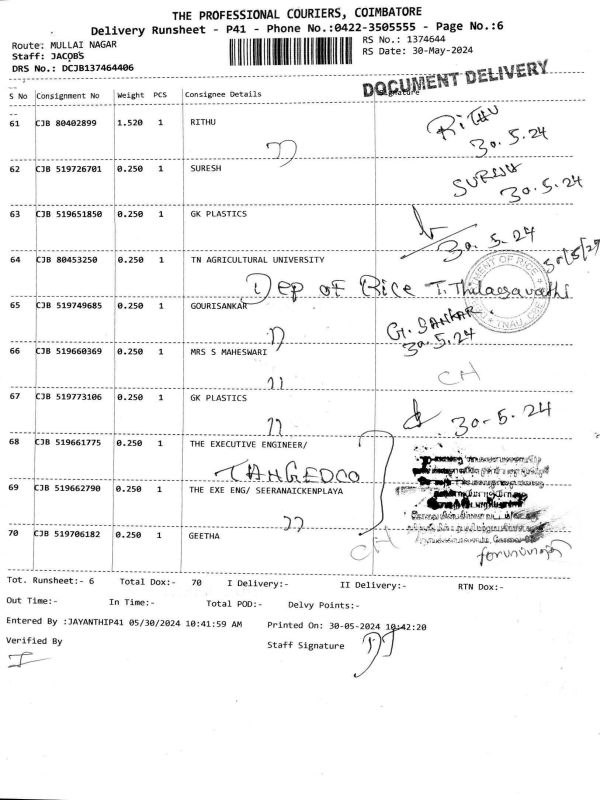 THE PROFESSIONAL COURIERS, COIMBATORE
Delivery Runsheet - P41 - Phone No.:0422-3505555 - Page No.:6
Route: MULLAI NAGAR RS No.: 1374644
Staff: JACOBS RS Date: 30-May-2024
DRS No.: DCJB137464406
DOCUMENT DELIVERY
S No Consignment No Weight PCS Consignee Details Signature
61 CJB 80402899 1.520 1 RITHU RITHU
30.5.24
62 CJB 519726701 0.250 1 SURESH SURESH
30.5.24
63 CJB 519651850 0.250 1 GK PLASTICS
30.5.24
64 CJB 80453250 0.250 1 TN AGRICULTURAL UNIVERSITY 30/5/24
Dep of Rice T.Thilagavathi
65 CJB 519749685 0.250 1 GOURISANKAR G. SANKAR.
30.5.24
66 CJB 519660369 0.250 1 MRS S MAHESWARI CH
67 CJB 519773106 0.250 1 GK PLASTICS 30-5.24
68 CJB 519661775 0.250 1 THE EXECUTIVE ENGINEER/
TANGEDCO
69 CJB 519662790 0.250 1 THE EXE ENG/ SEERANAICKENPLAYA
70 CJB 519706182 0.250 1 GEETHA CH
Tot. Runsheet:- 6 Total Dox:- 70 I Delivery:- II Delivery:- RTN Dox:-
Out Time:- In Time:- Total POD:- Delvy Points:-
Entered By :JAYANTHIP41 05/30/2024 10:41:59 AM Printed On: 30-05-2024 10:42:20
Verified By Staff Signature